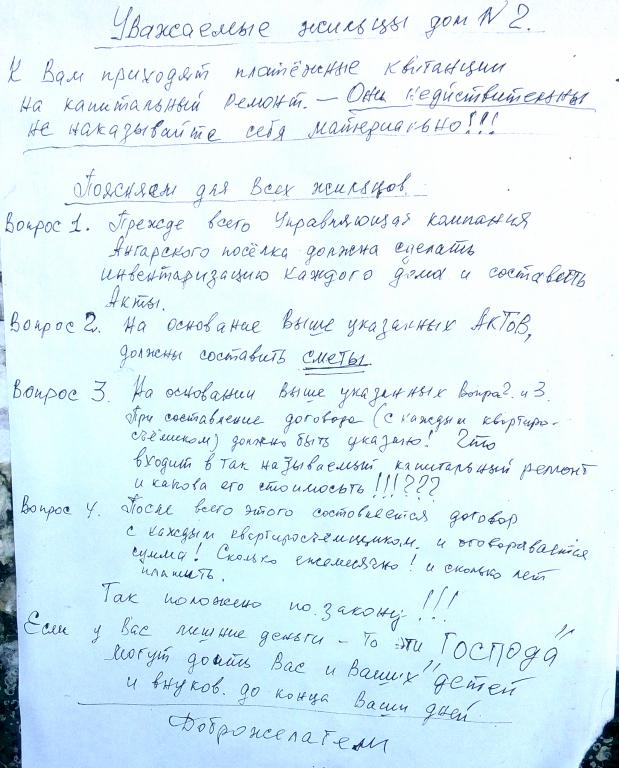 Уважаемые жильцы дом N 2.
К Вам приходят платёжные квитанции
на капитальный ремонт. – Они недиствительны
не наказывайте себя материально!!!
Поясняем для Всех жильцов
Вопрос 1. Прежде всего Управляющая компания
Ангарского посёлка должна сделать
инвентаризацию каждого дома и составить
Акты.
Вопрос 2. На основание Выше указанных АКТОВ,
должны составить сметы.
Вопрос 3. На основании Выше указанных Вопра 2. и 3.
При составление договора (с каждым квартиро-
съёмиком) должно быть указано! Что
входит в так называемый капитальный ремонт
и какова его стоимость !!!???
Вопрос 4. После всего этого состовляется договор
с каждым квартиросъёмщиком. и оговаривается
сумма! Сколько ежемесячно! и сколько лет
платить.
Так положено по закону !!!
Если у Вас лишние деньги – то эти "ГОСПОДА"
могут доить Вас и Ваших детей
и внуков. до конца Ваши дней
Доброжелатели